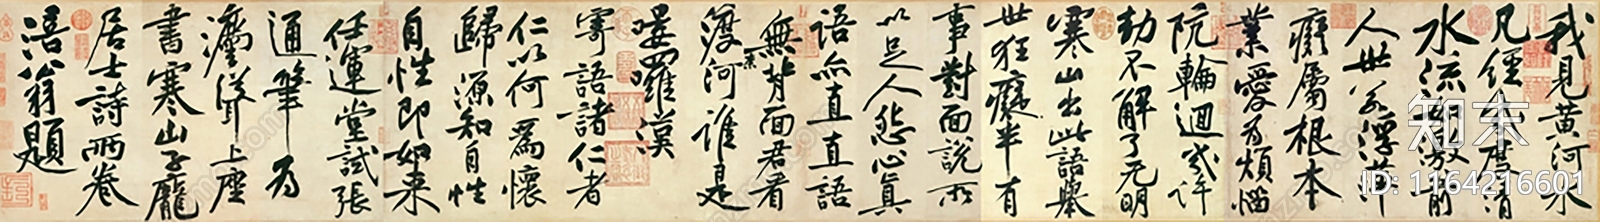 我見黃河水
凡經幾度清
水流如激箭
人世若浮萍
癡屬根本
業愛為煩惱
阬輪迴幾許
劫不解了无明
寒山出此語舉
世狂癡半有
事對面說所
以足人怨心真
語亦直直語
無背面君看
渡柰河誰是
嘍羅漢
寄語諸仁者
仁以何為懷
歸源知自性
自性即如来
任運堂試張
通筆為
灋聳上座
書寒山子龐
居士詩兩卷
涪翁題
知末
ID: 1164216601